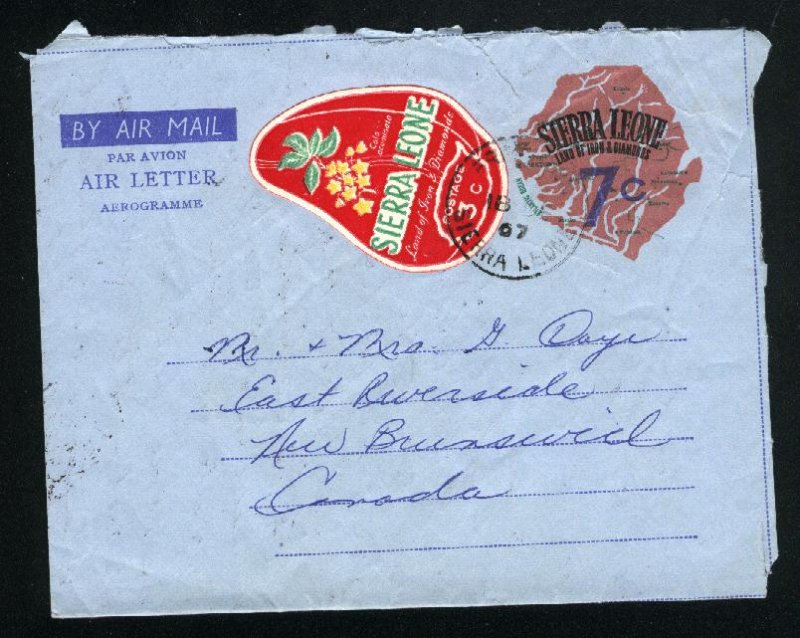 BY AIR MAIL
PAR AVION
AIR LETTER
AEROGRAMME
Cola acuminata
SIERRA LEONE
Land of Iron & Diamonds
POSTAGE
3 C
18
67
SIERRA LEONE
SIERRA LEONE
LAND OF IRON & DIAMONDS
7c
Mr. & Mrs. G. Daye
East Riverside
New Brunswick
Canada